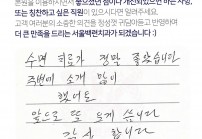 본원을 이용하시면서 좋았던 점이나 개선되었으면 하는 사항,
또는 칭찬하고 싶은 직원이 있으시다면 알려주세요.
고객 여러분의 소중한 의견을 항상 귀 기울이고 반영하여
더 큰 만족을 드리는 서울백련치과가 되겠습니다 :)
수면 치료가 정말 좋았습니다
주변에 소개 많이
했어요
앞으로도 또 오게 습니다
감사 합니다